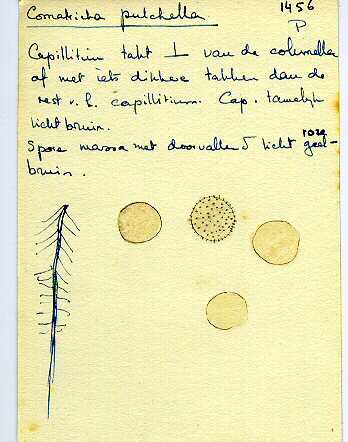 Comatricha pulchella 1456
P
Capillitium takt ⊥ van de columella
af met iets dikkere takken dan de
rest v. h. capillitium. Cap. tamelijk
lichtbruin.
Spore massa met doorvallend licht roze
geel-
bruin.